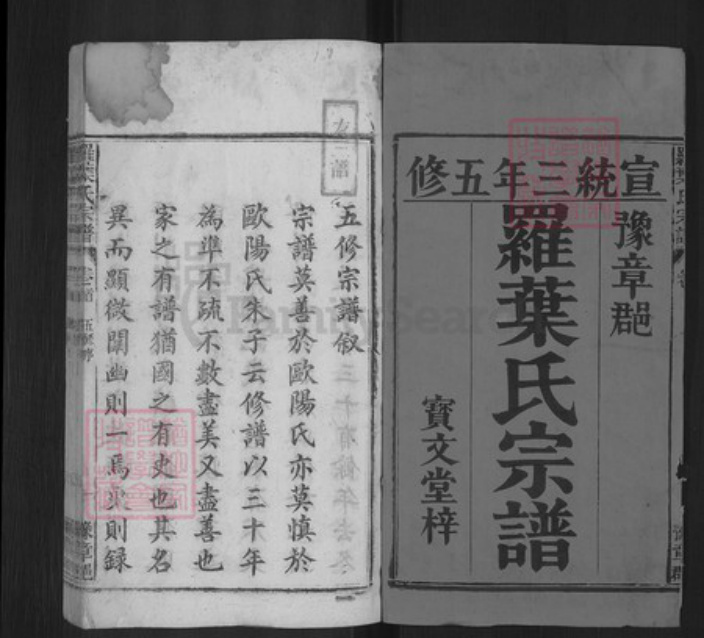 宣統三年五修
豫章郡
羅葉氏宗譜
寶文堂梓
五修宗譜叙
宗譜莫善於歐陽氏亦莫慎於
歐陽氏朱子云修譜以三十年
為準不疏不數盡美又盡善也
家之有譜猶國之有史也其名
異而顯微闡幽則一焉史則録
羅葉氏宗譜
FamilySearch